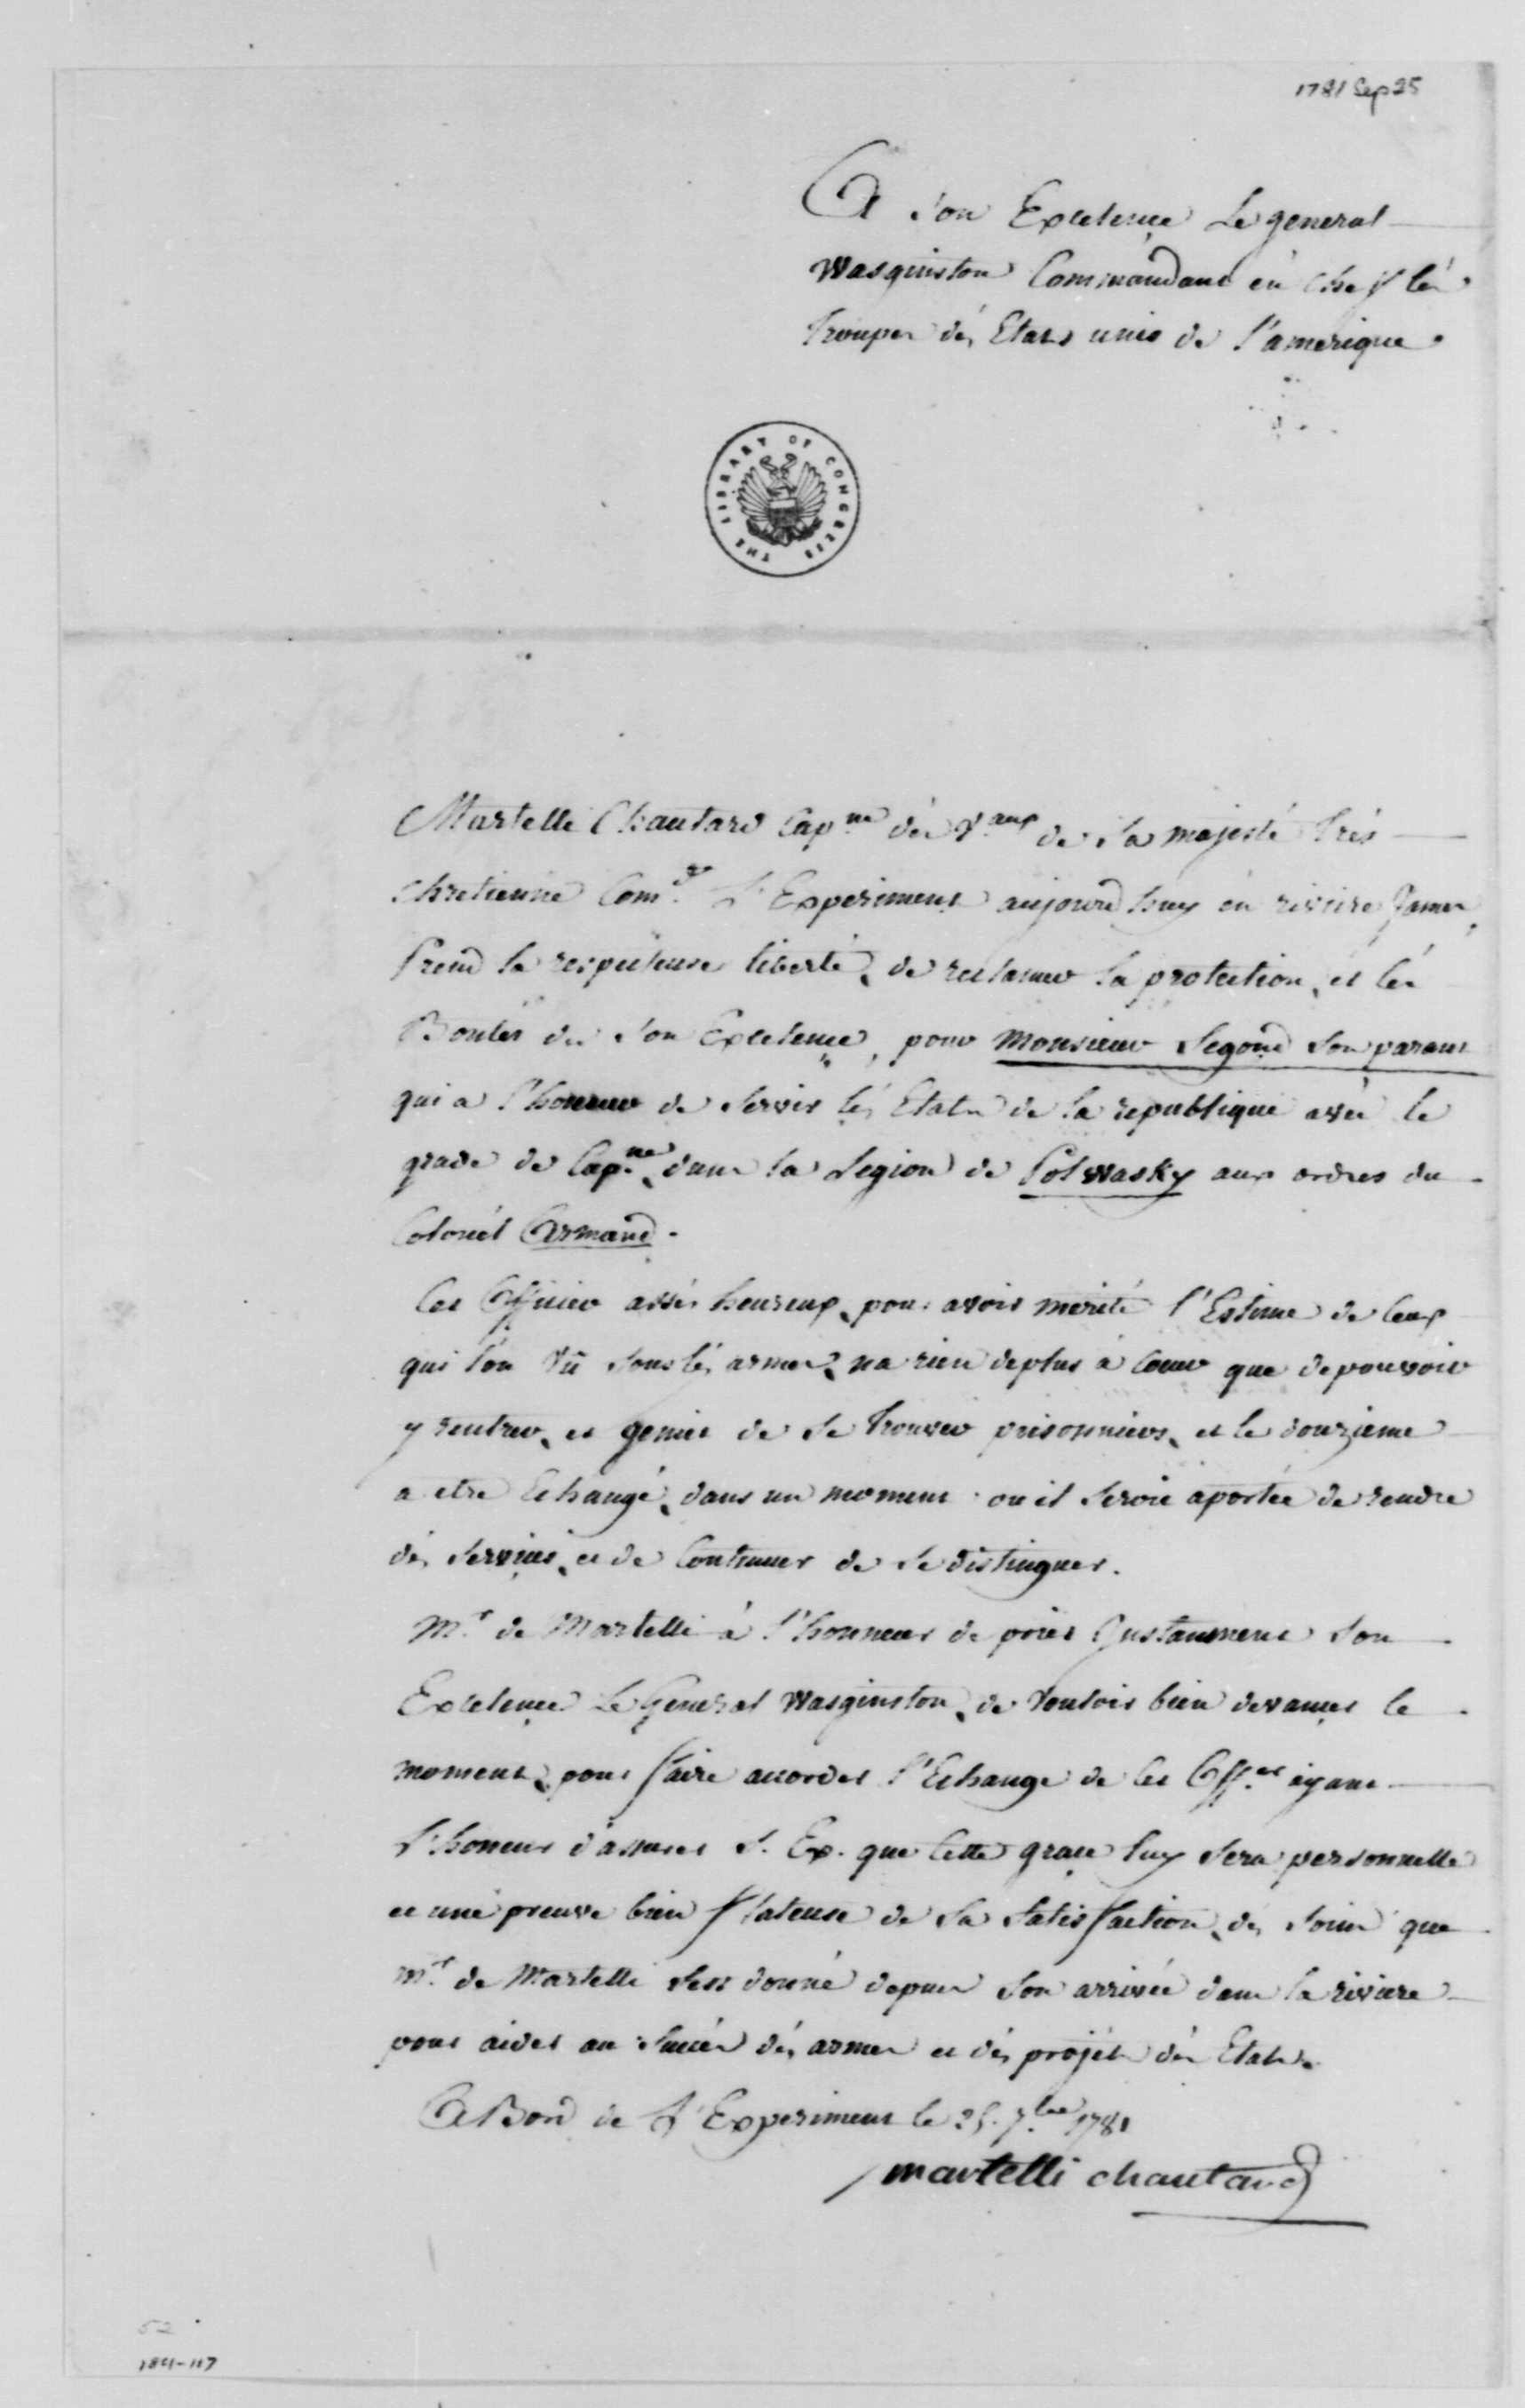 1781 Sep 25
A Son Excelençe Le general
Wasquinston Commandant en chef lés
Troupes dés Etats unis de l'amerique.
THE LIBRARY OF CONGRESS
Martelli Chautard Cap.ne dés V.aux de Sa majesté trés
chretienne Com.d L'Experiment aujourd huy en riviere James,
Prend la respecteuse liberté, de reclamer la protection, et lés
Bontés de Son Excelençe, pour Monsieur Segond Son parent
qui a l'honneur de Servir lés Etats de la republique avéc le
grade de Cap.ne, dans la Legion de Polwasky aux ordres du
Colonél Armand.
Cet Officier assés heureux, pour avoir merité l'Estime de Ceux
qui l'on vû Sous lés armes, na rien deplus à Coeur que depouvoir
y rentrer, et gemit de Se trouver prisonniers, et le douzieme
a etre Echangé, dans un moment ou il Seroit aportée de rendre
dés Serviçes, et de Continuer de Se distinguer.
M.r de Martelli à l'honneur de prier Instamment Son
Excelençe Le General Wasginston, de Vouloir bien devançer le
moment, pour faire accorder l'Echange de Cet Off.er ayant
L'honeur d'assurer S. Ex. que Cette graçe luy Sera personnelle
et une preuve bien flateuse de Sa Satisfaction, dés Soins que
M.r de Martelli Sest donné depuis Son arrivée dans la riviere
pour aider au Succés dés armes et dés projéts dés Etats.
A Bord de L'Experiment le 25. 7.bre 1781
martelli chautard
52
184-117